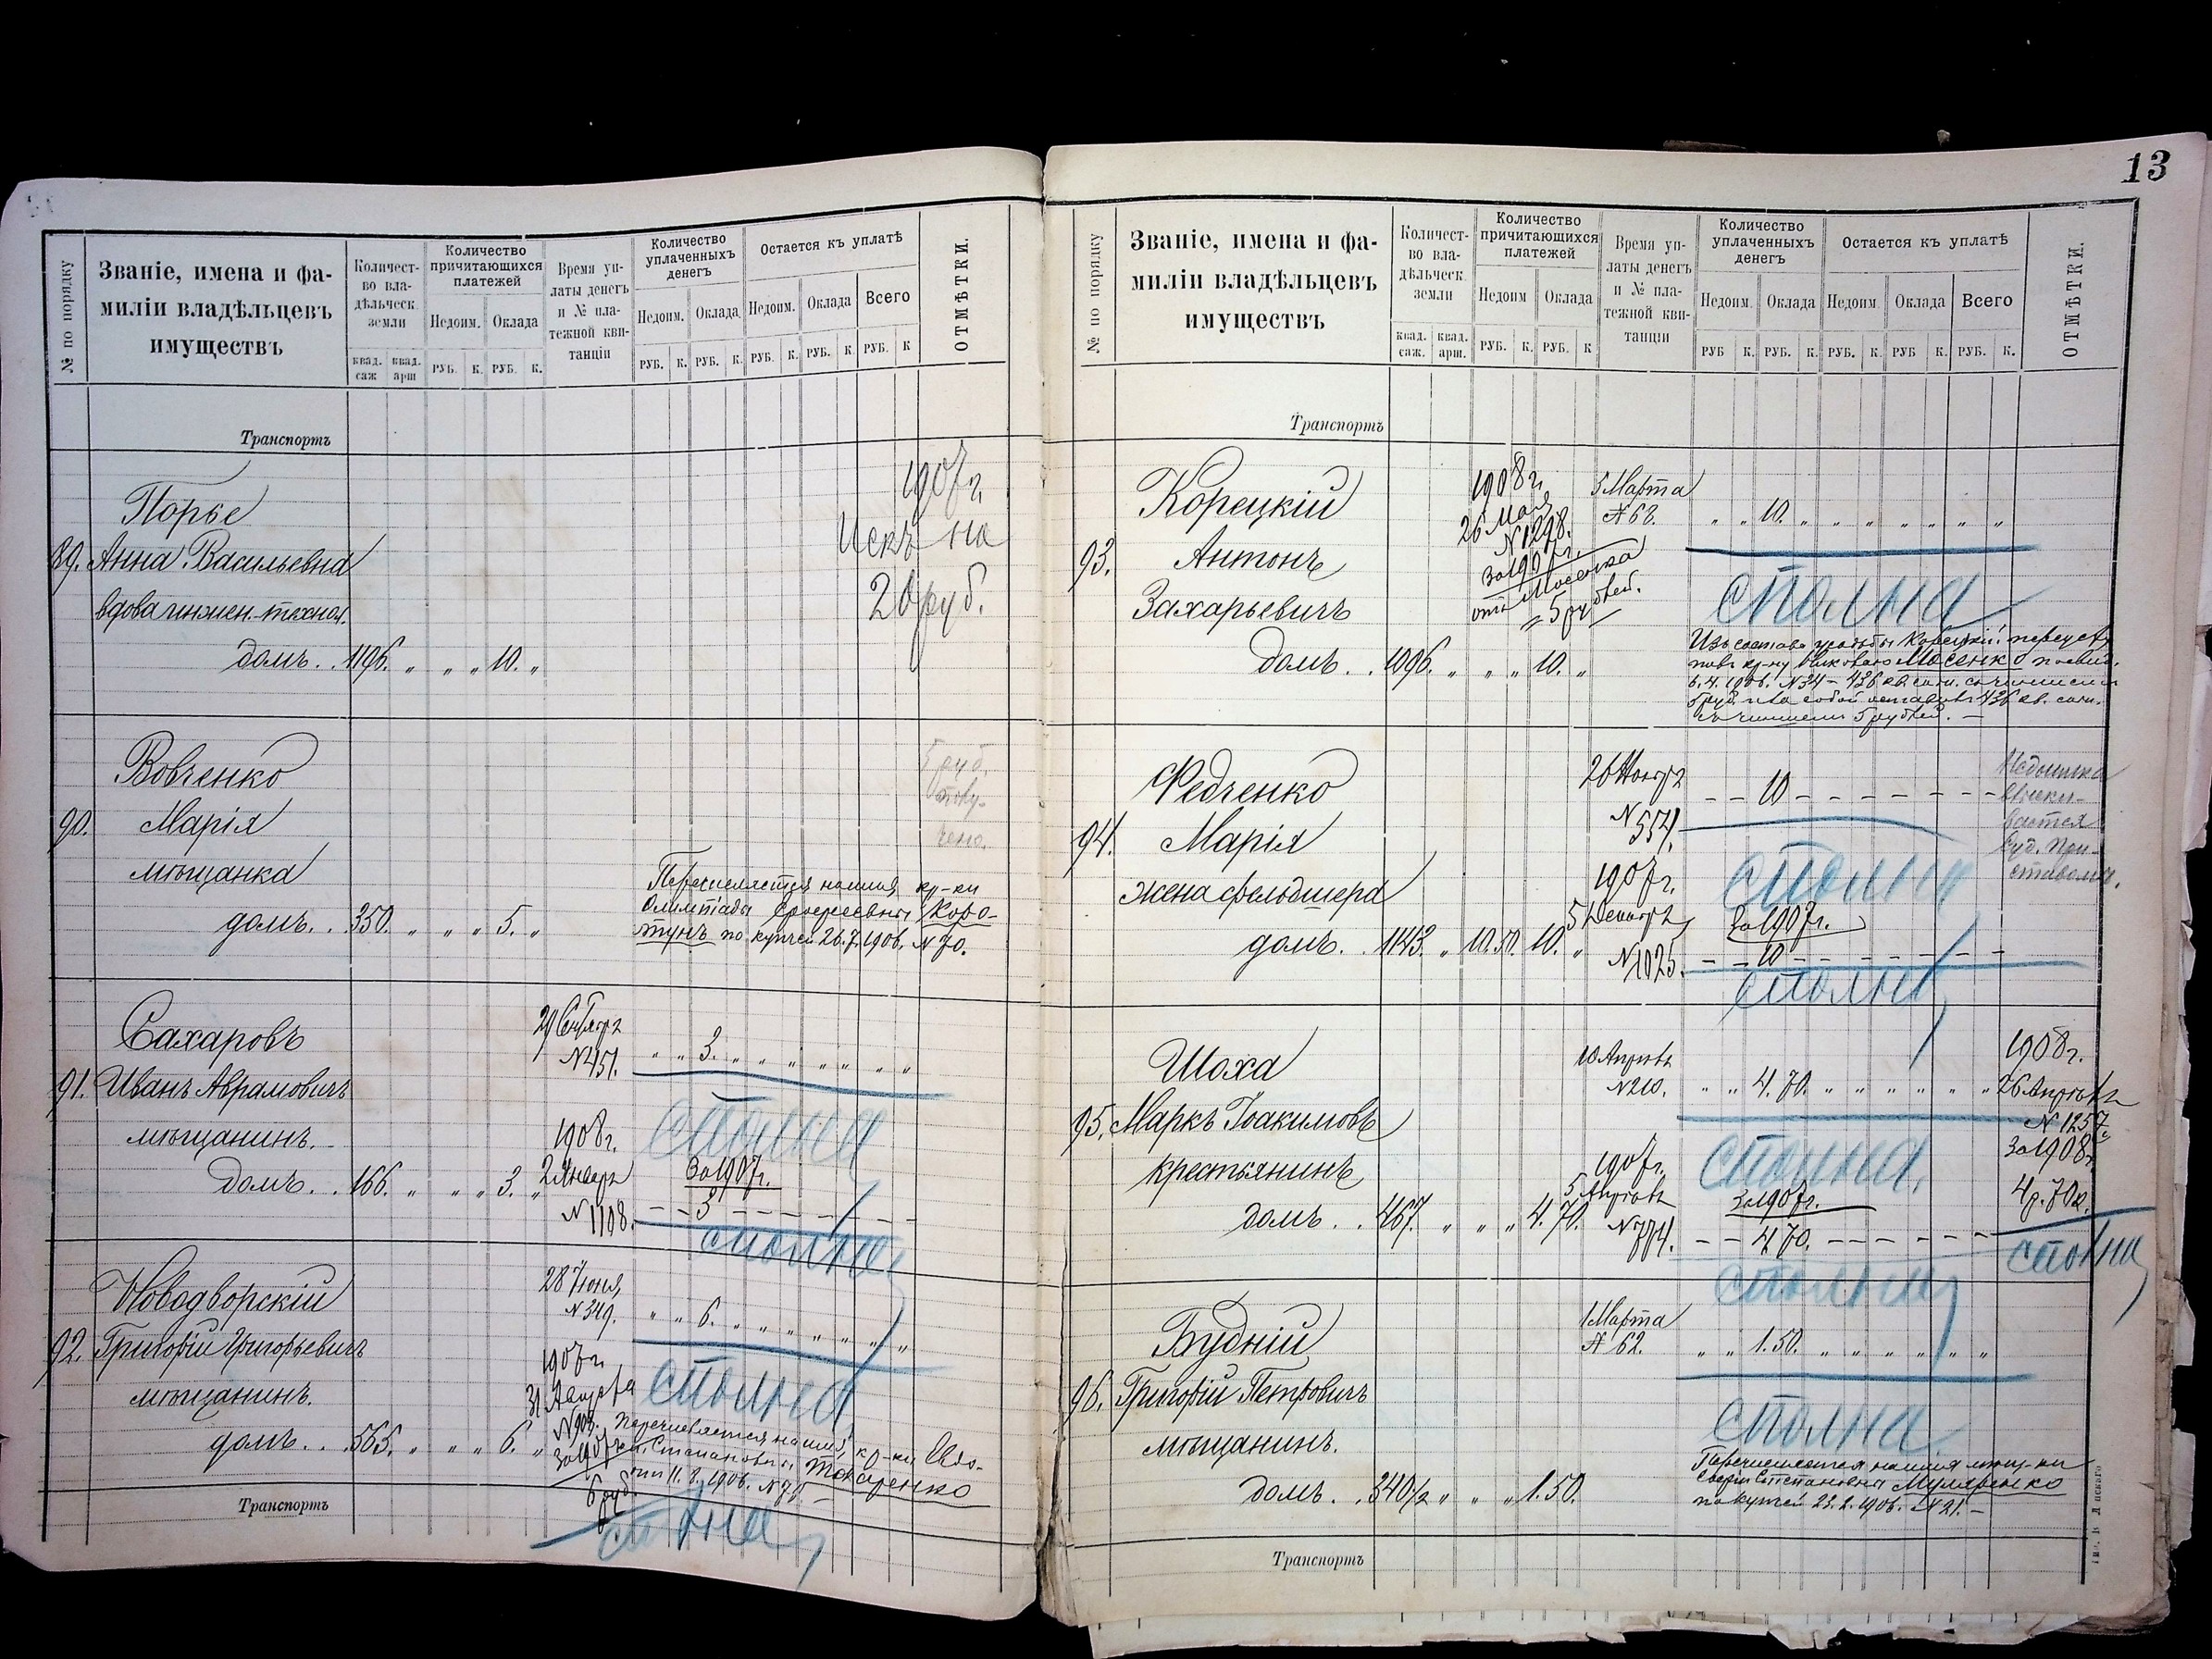 № по порядку
Званіе, имена и фа-
миліи владѣльцевъ
имуществъ
Количест-
во вла-
дѣльческ.
земли
квад. саж
квад. арш
Количество
причитающихся
платежей
Недоим.
Оклада
РУБ. К. РУБ. К.
Время уп-
латы денегъ
и № пла-
тежной кви-
танціи
Количество
уплаченныхъ
денегъ
Недоим. Оклада
РУБ. К. РУБ. К.
Остается къ уплатѣ
Недоим. Оклада Всего
РУБ. К. РУБ. К. РУБ. К
ОТМѢТКИ.
Транспортъ
Порье
89. Анна Васильевна
вдова инжен.-технол.
домъ. . 1196. „ „ „ 10. „
1907 г.
Искъ на
20 руб.
Вовченко
90. Марія
мѣщанка
домъ. . 350. „ „ „ 5. „
5 руб.
полу-
чено.
Перечисляется на имя кр-ки
Олимпіады Коро-
тунъ по купчей 26.7.1906. N 70.
Сахаровъ
91. Иванъ Аврамовичъ
мѣщанинъ.
домъ. . 166. „ „ „ 3. „
29 Сентября
N 451. „ „ 3. „ „ „ „ „ „ „
сполна
1908 г.
2 Января
N 1108.
За 1907 г.
– – 3 – – – – – – –
сполна
Новодворскій
92. Григорій Григорьевичъ
мѣщанинъ.
домъ. . 565. „ „ „ 6. „
28 Іюня,
N 349. „ „ 6. „ „ „ „ „ „ „
сполна
1907 г.
31 Августа
N 908.
За 1907 г.
6 руб.
Перечисляется на имя кр-ки Евдо-
кіи Степановны Токаренко
11.8.1906.
сполна
Транспортъ
13
№ по порядку
Званіе, имена и фа-
миліи владѣльцевъ
имуществъ
Количест-
во вла-
дѣльческ.
земли
квад. саж.
квад. арш.
Количество
причитающихся
платежей
Недоим
Оклада
РУБ. К. РУБ. К
Время уп-
латы денегъ
и № пла-
тежной кви-
танціи
Количество
уплаченныхъ
денегъ
Недоим. Оклада
РУБ К. РУБ. К.
Остается къ уплатѣ
Недоим. Оклада Всего
РУБ. К. РУБ К. РУБ. К.
ОТМѢТКИ.
Транспортъ
Корецкій
93. Антонъ
Захарьевичъ
домъ. . 1096. „ „ „ 10. „
1908 г.
26 Мая
N 1298.
За 1907 г.
отъ Мосенка
5 рублей.
5 Марта
N 68. „ „ 10. „ „ „ „ „ „ „
сполна
Изъ состава усадьбы Корецкій переусту-
Мосенко
436 кв. саж.
436 кв. саж.
5 рублей. –
Федченко
94. Марія
жена фельдшера
домъ. . 1143. „ 10.50. 10. „
26 Ноября
N 554.
– – 10 – – – – – – –
сполна
Недоимка
взыски-
вается
Суд. При-
ставомъ.
1907 г.
5 Декабря
N 1025.
За 1907 г.
– – 10 – – – – – – –
сполна
Шоха
95. Маркъ Іоакимовъ
крестьянинъ
домъ. . 467. „ „ „ 4.70.
10 Апрѣля
N 210. „ „ 4.70. „ „ „ „ „ „
сполна.
1907 г.
5 Апрѣля
N 774.
За 1907 г.
– – 4 70. – – – – – –
сполна
1908 г.
26 Апрѣля
N 1257.
За 1908 г.
4 р. 70 к.
сполна
Будній
96. Григорій Петровичъ
мѣщанинъ.
домъ. . 340½ „ „ „ 1.50.
1 Марта
N 62. „ „ 1.50. „ „ „ „ „ „ „
сполна
Перечисляется на имя мѣщ-ки
Степановны Муляренко
по купчей 23.2.1906. N 21. –
Транспортъ